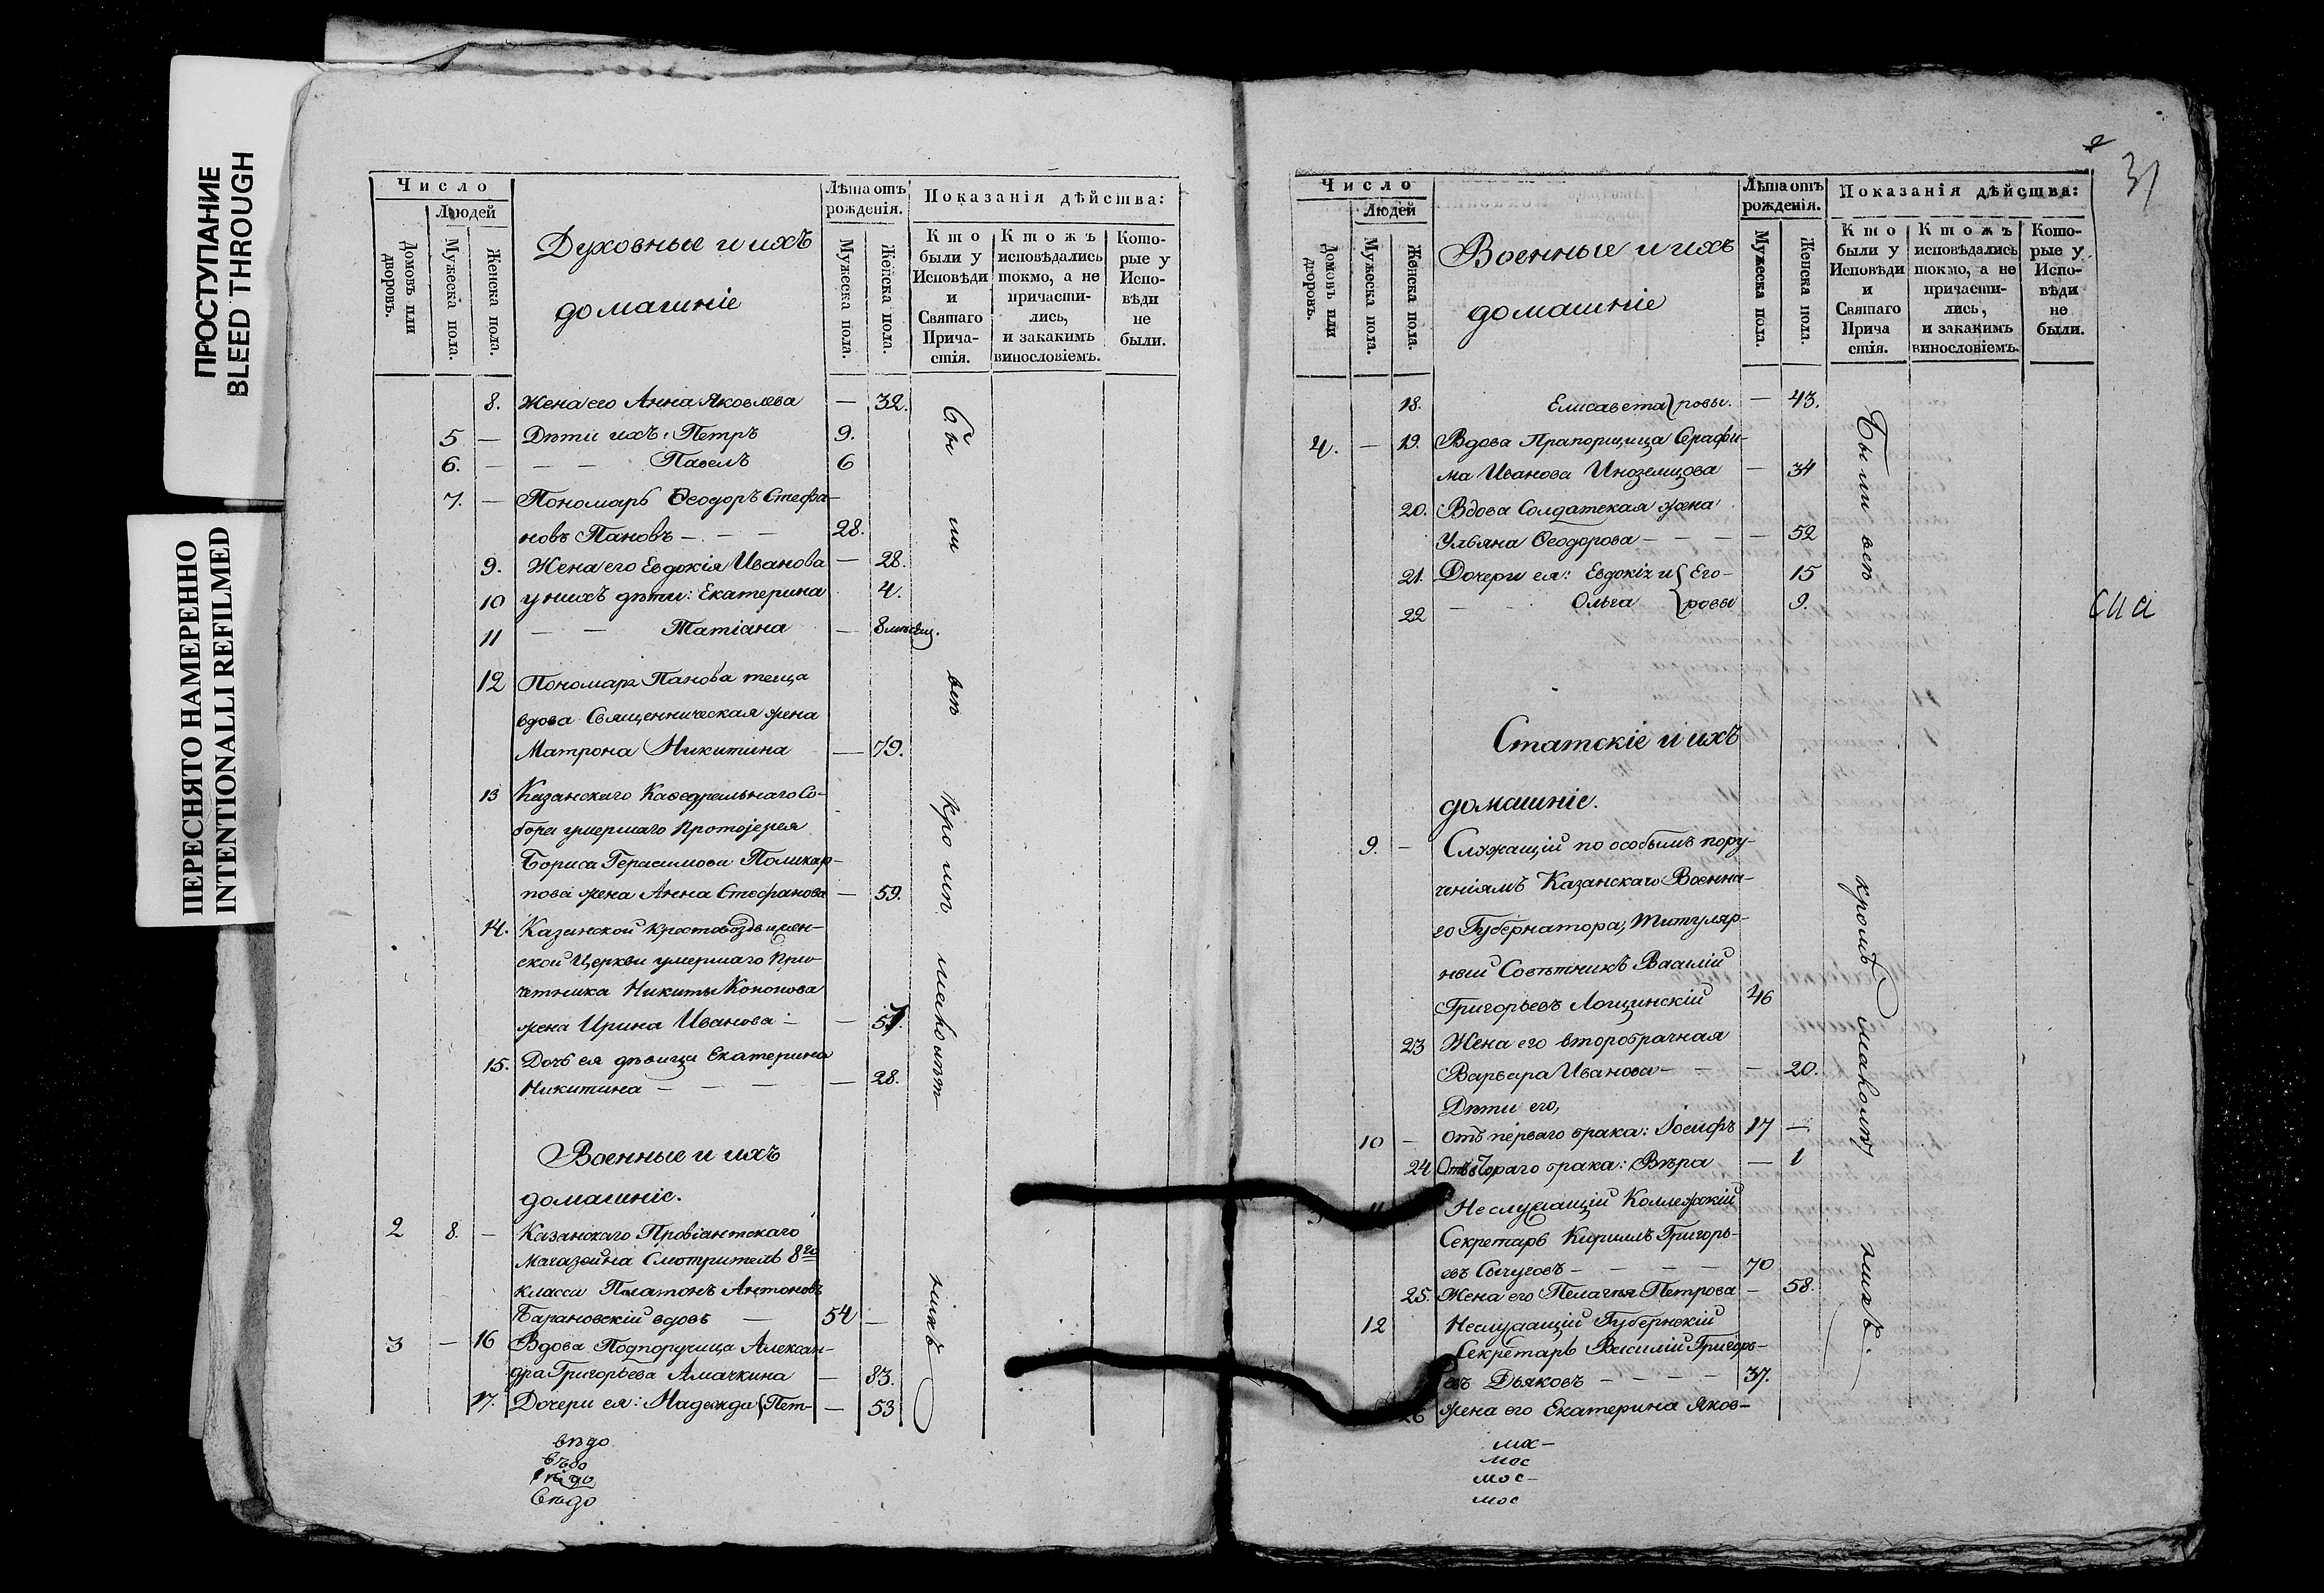 ПРОСТУПАНИЕ
BLEED THROUGH
ПЕРЕСНЯТО НАМЕРЕННО
INTENTIONALLI REFILMED
Число
Людей
Домовъ или дворовъ.
Мужеска пола.
Женска пола.
Духовные и ихъ
домашніе
Лѣта отъ рожденія.
Мужеска пола.
Женска пола.
Показанія дѣйства:
Кто были у Исповѣди и Святаго Причастія.
Ктожъ исповѣдались токмо, а не причастились, и закакимъ винословіемъ.
Которые у Исповѣди не были.
8. Жена его Анна Яковлева — 32.
5 — Дѣти ихъ: Петръ 9.
6. — — — Павелъ 6
7. — Пономарь Ѳеодоръ Стефа-
новъ Пановъ — — — 28.
9. Жена его Евдокія Иванова — 28.
10 у нихъ дѣти: Екатерина 4.
11 — — Татіана — 8 мѣсяц.
12 Пономаря Панова теща
вдова Священническая жена
Матрона Никитина — 79.
13 Казанскаго Каѳедральнаго Со-
бора умершаго Протоіерея
Бориса Герасимова Поликар-
пова жена Анна Стефанова — 59.
14. Казанской Крестовоздвижен-
ской Церкви умершаго При-
четника Никиты Кононова
жена Ирина Иванова — — 57.
15. Дочь ея дѣвица Екатерина
Никитина — — — — 28.
Военные и ихъ
домашніе.
2 8. — Казанскаго Провіантскаго
Магазейна Смотритель 8го
класса Платонъ Антоновъ
Барановскій вдовъ — 54 —
3 — 16 Вдова Подпоручица Алексан-
дра Григорьева Амачкина — 83.
17. Дочери ея: Надежда { Пет- — 53
Были всѣ кромѣ малолѣтнихъ
вѣдо
вѣдо
вѣдо
вѣдо
2
31
Число
Людей
Домовъ или дворовъ.
Мужеска пола.
Женска пола.
Военные и ихъ
домашніе
Лѣта отъ рожденія.
Мужеска пола.
Женска пола.
Показанія дѣйства:
Кто были у Исповѣди и Святаго Прича стія.
Ктожъ исповѣдались токмо, а не причастились, и закакимъ винословіемъ.
Которые у Исповѣди не были.
18. Елисавета } ровы. — 43.
4. — 19. Вдова Прапорщица Серафи-
ма Иванова Иноземцова — 34
20. Вдова Солдатская жена
Ульяна Ѳеодорова — — — — 52
21. Дочери ея: Евдокія и { Его- 15
22 — Ольга { ровы 9.
Статскіе и ихъ
домашніе.
9. — Служащій по особымъ пору-
ченіямъ Казанскаго Военна-
го Губернатора, Титуляр-
ный Совѣтникъ Василій
Григорьевъ Лощинскій 46
23 Жена его второбрачная
Варвара Иванова — — — 20.
Дѣти его,
10 — отъ перваго брака: Іосифъ 17 —
24 Отъ втораго брака: Вѣра — 1
11 Неслужащій Коллежскій
Секретарь Кириллъ Григорь-
евъ Сычуговъ — — — — 70
25. Жена его Пелагія Петрова — 58.
12 Неслужащій Губернскій
Секретарь Василій Григорь-
евъ Дьяковъ — — — — 37.
26 жена его Екатерина Яков-
Были всѣ кромѣ малолѣтнихъ.
сиа
мос
мос-
мос